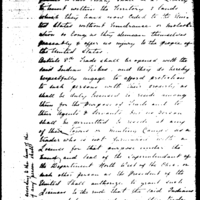 to hunt within the Territory & lands
which they have now ceded to the Uni-
ted States without hindrance or molesta-
tion so long as they demean themselves
peaceably & offer no injury to the people of
the United States
Article 8th Trade shall be opened with the
said Indian Tribes and they do hereby
respectfully engage to afford protection
to such persons with their property as
shall be duly licensed to reside among
them for the Purpose of Trade and to
their Agents & Servants but no person
shall be permitted to reside at any
of their Towns or Hunting Camps as a
Trader who is not furnished with a
License for that purpose under the
hand and Seal of the Superintendent of
the Department North West of the Ohio or
such other person as the President of the
United States shall authorize to grant such
Licenses to the end that the said Indians